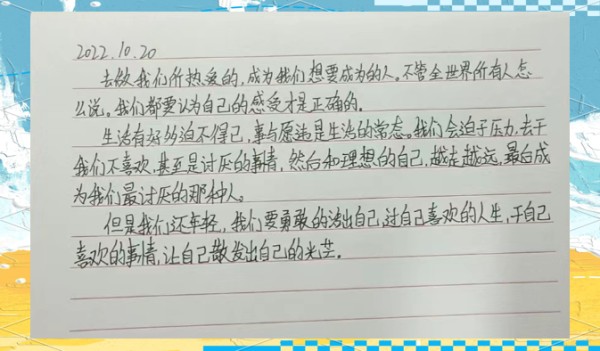 2022.10.20
去做我们所热爱的,成为我们想要成为的人。不管全世界所有人怎
么说。我们都要认为自己的感受才是正确的。
生活有好多迫不得已,事与愿违是生活的常态。我们会迫于压力,去干
我们不喜欢,甚至是讨厌的事情,然后和理想的自己,越走越远,最后成
为我们最讨厌的那种人。
但是我们还年轻,我们要勇敢的活出自己,过自己喜欢的人生,干自己
喜欢的事情,让自己散发出自己的光芒。